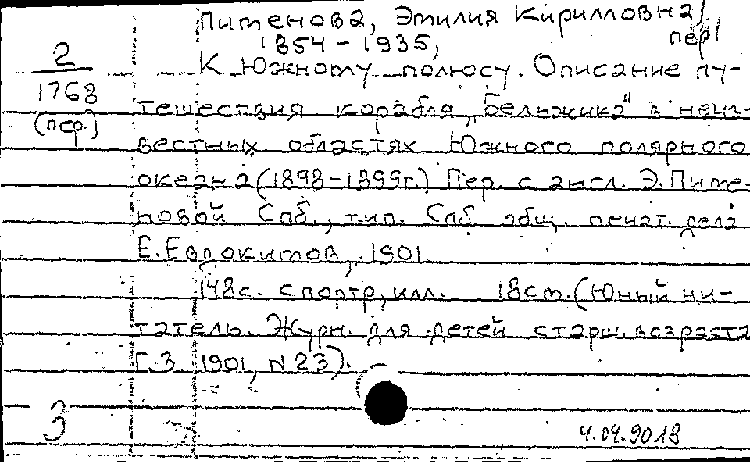 Пименова, Эмилия Кирилловна,
1854-1935, пер.
2
1768
(пер.)
К Южному полюсу. Описание пу-
тешествия корабля „Бельжика" в неиз-
вестных областях Южного полярного
океана (1898-1899г.) Пер. с англ. Э. Пиме-
новой Спб., тип. Спб общ. печат. дела
Е. Евдокимов, 1901.
148с. с портр, илл. 18см. (Юный чи-
татель. Журн. для детей старш. возраста
Г. 3 1901, N 23).
3